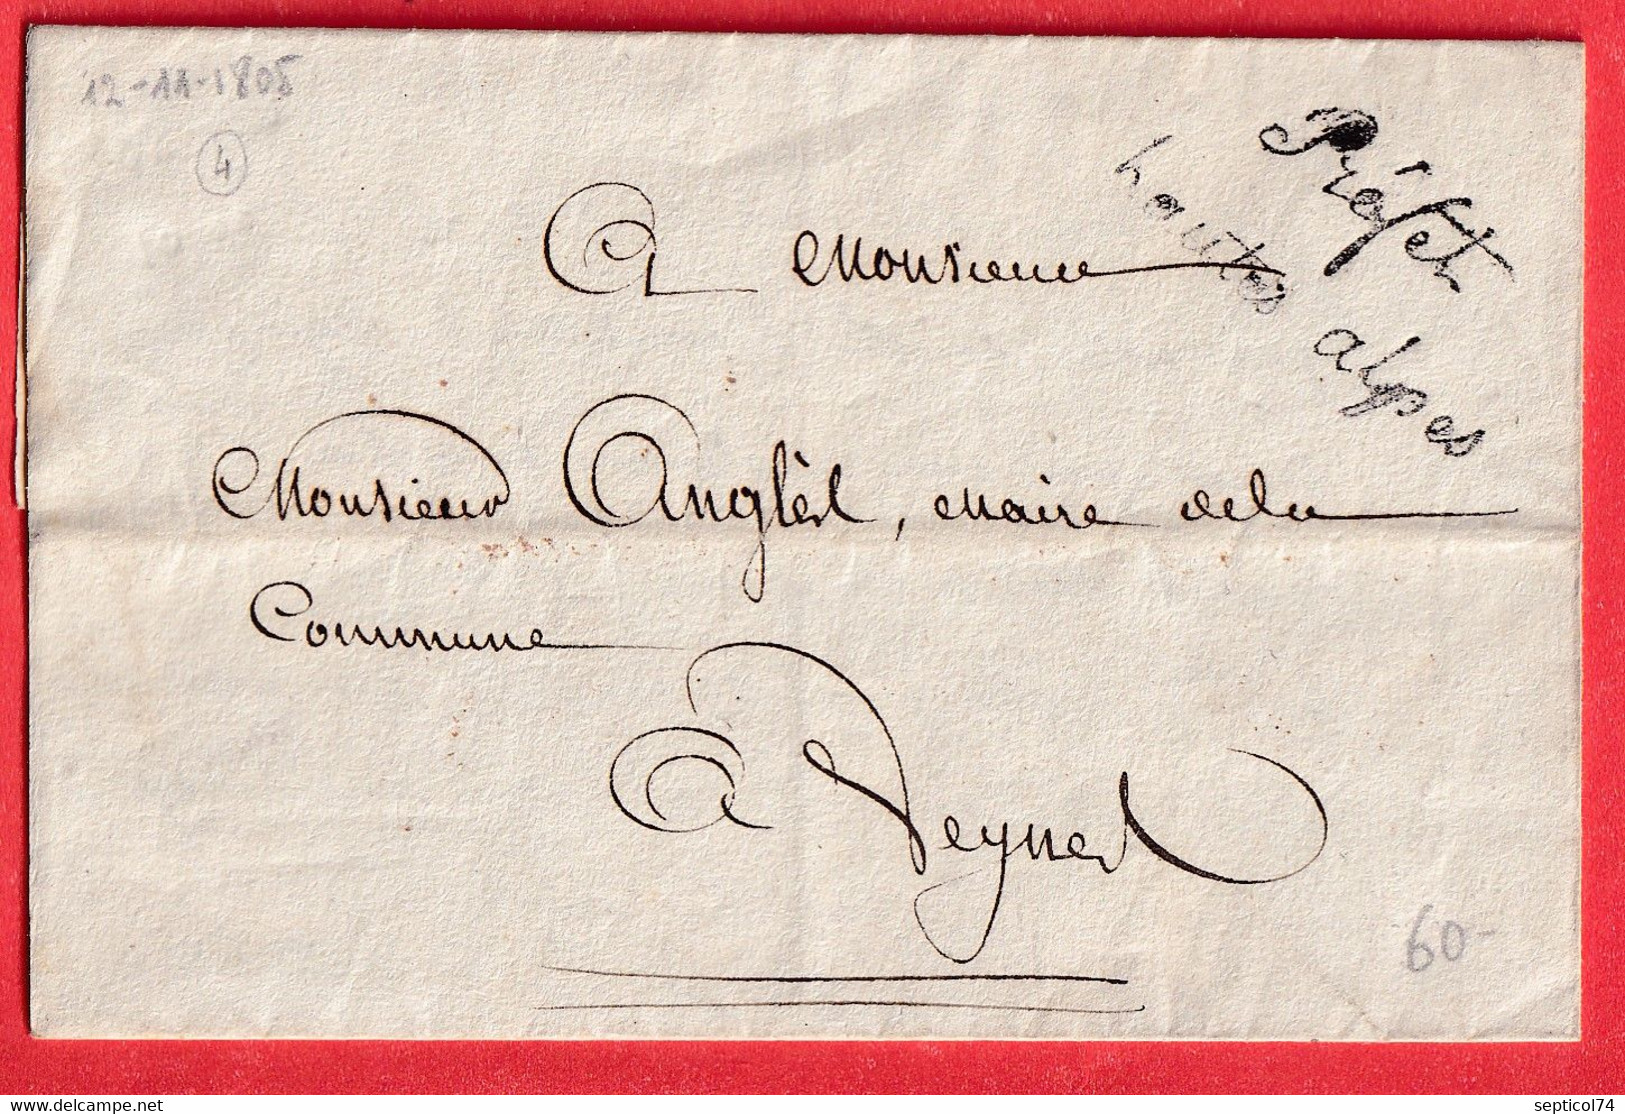 12-11-1808
4
Préfet
hautes alpes
A Monsieur
Monsieur Anglès, Maire de la
Commune
A Veynes
60-
delcampe.net
septicol74